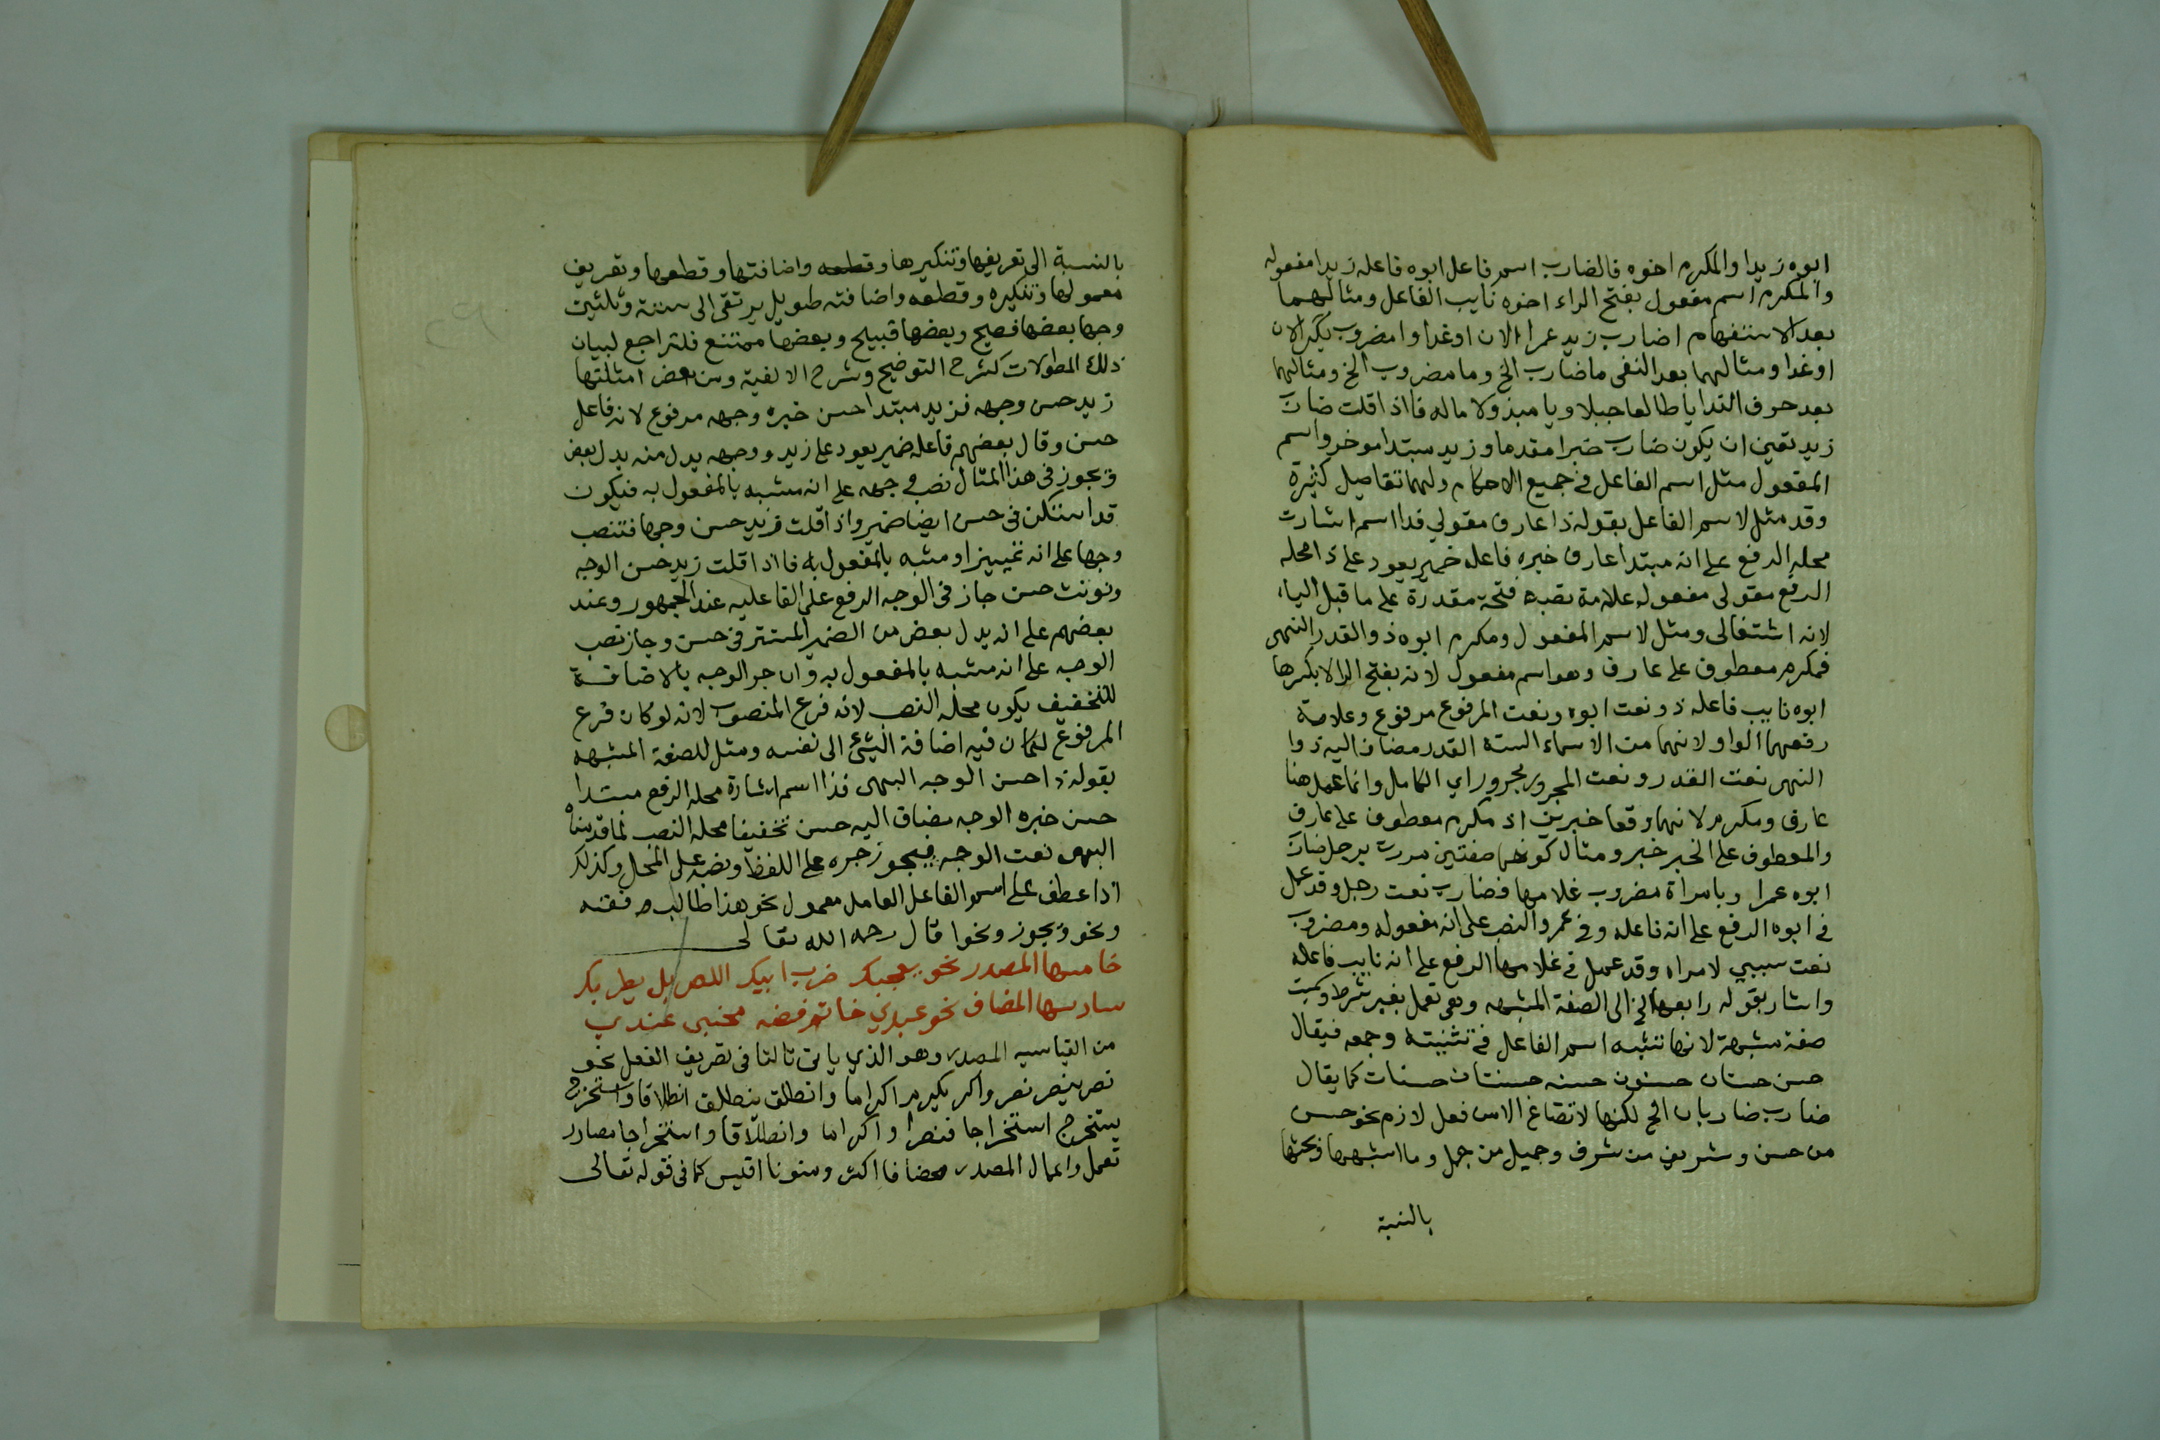 ابوه زيدا والمكرم اخوه فالضارب اسم فاعل ابوه فاعله زيدا مفعوله
والمكرم اسم مفعول بفتح الراء اخوه نايب الفاعل ومثالهما
بعد الاستفهام اضارب زيد عمرا الان او غدا وامضروب بكر الان
او غدا ومثالهما بعد النفى ماضارب الخ وما مضروب الخ ومثالهما
بعد حرف الندا يا طالعا جبلا ويا مبذولا ماله فاذا قلت ضارب
زيد تعين ان يكون ضارب خبرا مقدما وزيد مبتدا موخر واسم
المفعول مثل اسم الفاعل في جميع الاحكام ولهما تفاصيل كثيرة
وقد مثل لاسم الفاعل بقوله ذا عارف مقولي فذا اسم اشارت
محله الرفع على انه مبتدا عارف خبره فاعله ضمير يعود على ذا محله
الرفع مقولى مفعوله علامة نصبه فتحة مقدرة على ما قبل الياء
لانه اشتغالى ومثل لاسم المفعول ومكرم ابوه ذو القدر النهى
فمكرم معطوف على عارف وهو اسم مفعول لانه بفتح الرا لا بكسرها
ابوه نايب فاعله ذو نعت ابوه ونعت المرفوع مرفوع وعلامة
رفعهما الواو لانهما من الاسماء الستة القدر مضاف اليه ذوا
النهى نعت القدر ونعت المجرور مجرور اي الكامل وانما عمل هنا
عارف ومكرم لانهما وقعا خبرين اذ مكرم معطوف على عارف
والمعطوف على الخبر خبر ومثال كونهما صفتين مررت برجل ضارب
ابوه عمرا وبامراة مضروب غلامها فضارب نعت رجل وقد عمل
في ابوه الرفع على انه فاعله وفي عمرو النصب على انه مفعوله ومضروب
نعت سببي لامراه وقد عمل في غلامها الرفع على انه نايب فاعله
واشار بقوله رابعها الخ الى الصفة المشبهه وهى تعمل بغير شرط وسميت
صفة مشبهة لانها تشبه اسم الفاعل في تثنيته وجمعه فيقال
حسن حسنان حسنون حسنه حسنتان حسنات كما يقال
ضارب ضاربان الخ لكنها لا تصاغ الا من فعل لازم نحو حسن
من حسن وشريف من شرف وجميل من جمل وما اشبهها وبحثها
بالنسبة
بالنسبة الى تعريفها وتنكيرها وقطعه واضافتها وقطعها وتعريف
معمولها وتنكيره وقطعه واضافته طويل يرتقى الى ستة وثلثين
وجها بعضها فصيح وبعضها قبيح وبعضها ممتنع فلتراجع لبيان
ذلك المطولات كشرح التوضيح وشرح الالفية ومن بعض امثلتها
زيد حسن وجهه فزيد مبتدا حسن خبره وجهه مرفوع لانه فاعل
حسن وقال بعضهم فاعله ضمير يعود على زيد ووجهه بدل منه بدل بعض
ويجوز في هذا المثال نصب وجهه على انه مشبه بالمفعول به فيكون
قد استكن في حسن ايضا ضمير واذا قلت زيد حسن وجها فتنصب
وجها على انه تمييز او مشبه بالمفعول به فاذا قلت زيد حسن الوجه
ونونت حسن جاز في الوجه الرفع على الفاعليه عند الجمهور وعند
بعضهم على انه بدل بعض من الضمير المستتر في حسن وجاز نصب
الوجه على انه مشبه بالمفعول به وان جر الوجه بالاضافة
للتخفيف يكون محله النصب لانه فرع المنصوب لانه لو كان فرع
المرفوع لكان فيه اضافة الشئ الى نفسه ومثل للصفة المشبهه
بقوله ذا حسن الوجه البهى فذا اسم اشارة محله الرفع مبتدا
حسن خبره الوجه مضاف اليه حسن تخفيفا محله النصب لما قدمناه
البهى نعت الوجه فيجوز جره على اللفظ ونصبه على المحل وكذلك
اذا عطف على اسم الفاعل العامل معمول نحو هذا طالب
ونحو ويجوز ونحوا قال رحمه الله تعالى
خامسها المصدر نحو يعجبك ضرب ابيك اللص بل يطربك
سادسها المضاف نحو عبدي خاتم فضه عندي
من القياسيه المصدر وهو الذي ياتى ثالثا فى تصريف الفعل نحو
نصر ينصر نصرا واكرم يكرم اكراما وانطلق ينطلق انطلاقا واستخرج
يستخرج استخراجا فنصرا واكراما وانطلاقا واستخراجا مصادر
تعمل واعمال المصدر مضافا اكثر ومنونا اقيس كما في قوله تعالى